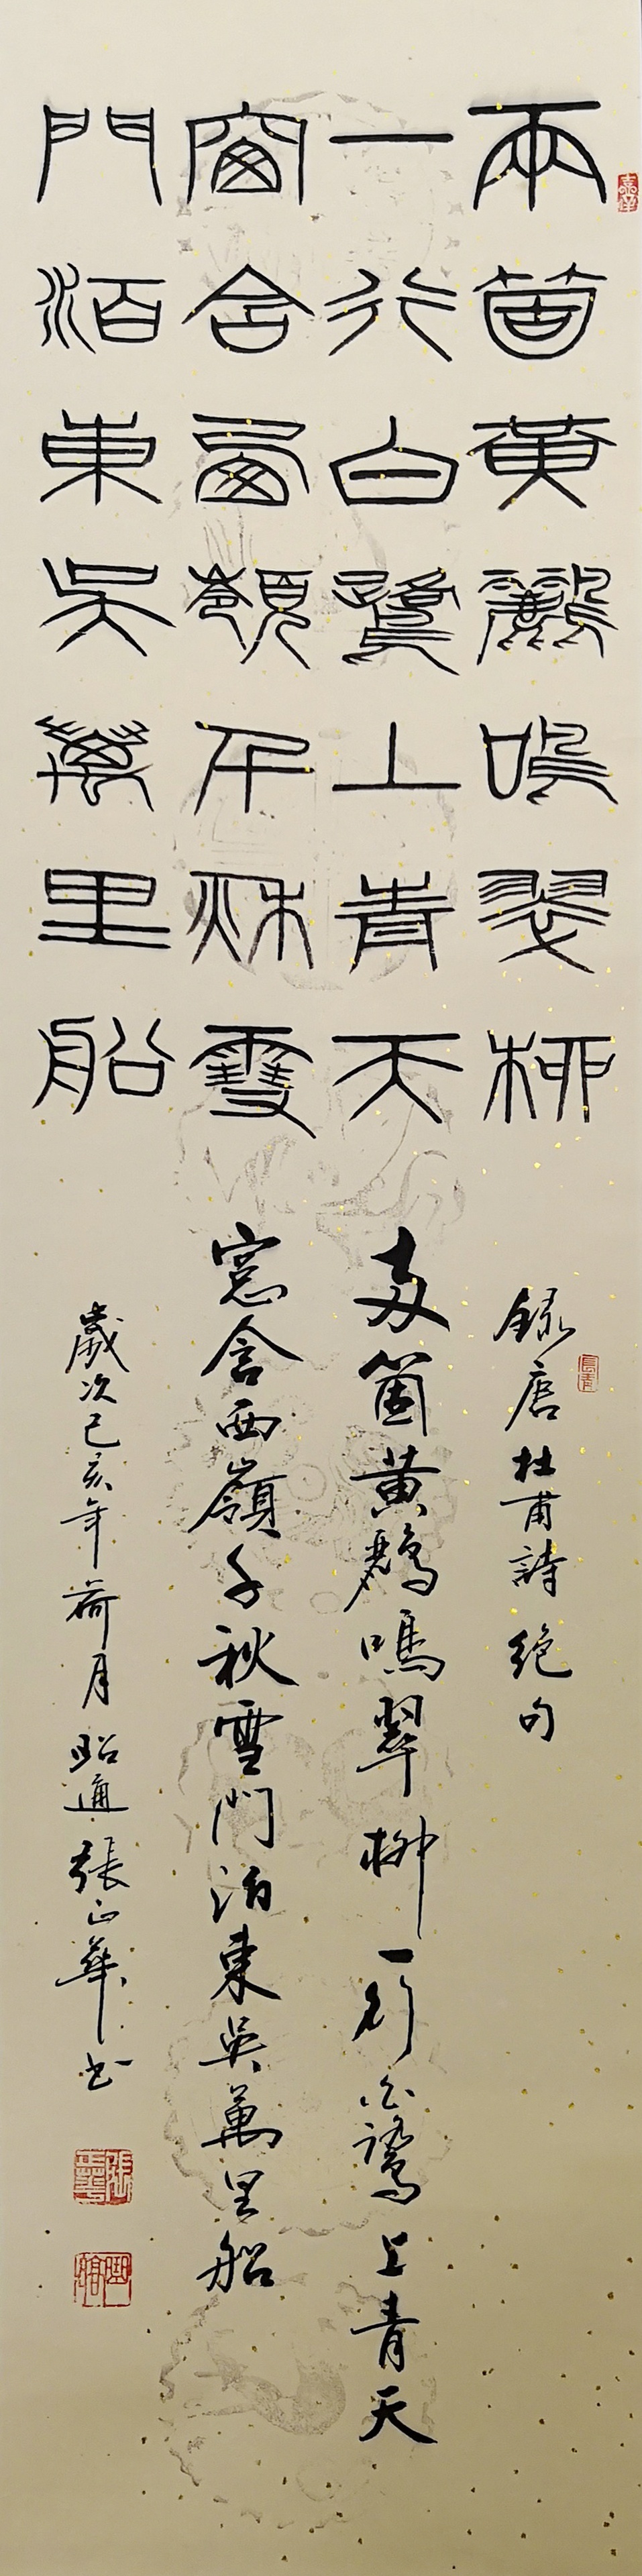 兩箇黃鸝鳴翠柳
一行白鷺上青天
窗含西嶺千秋雪
門泊東吳萬里船
錄唐杜甫詩絕句
兩箇黃鸝鳴翠柳一行白鷺上青天
窓含西嶺千秋雪門泊東吳萬里船
歲次己亥年荷月昭通張正華书
長青